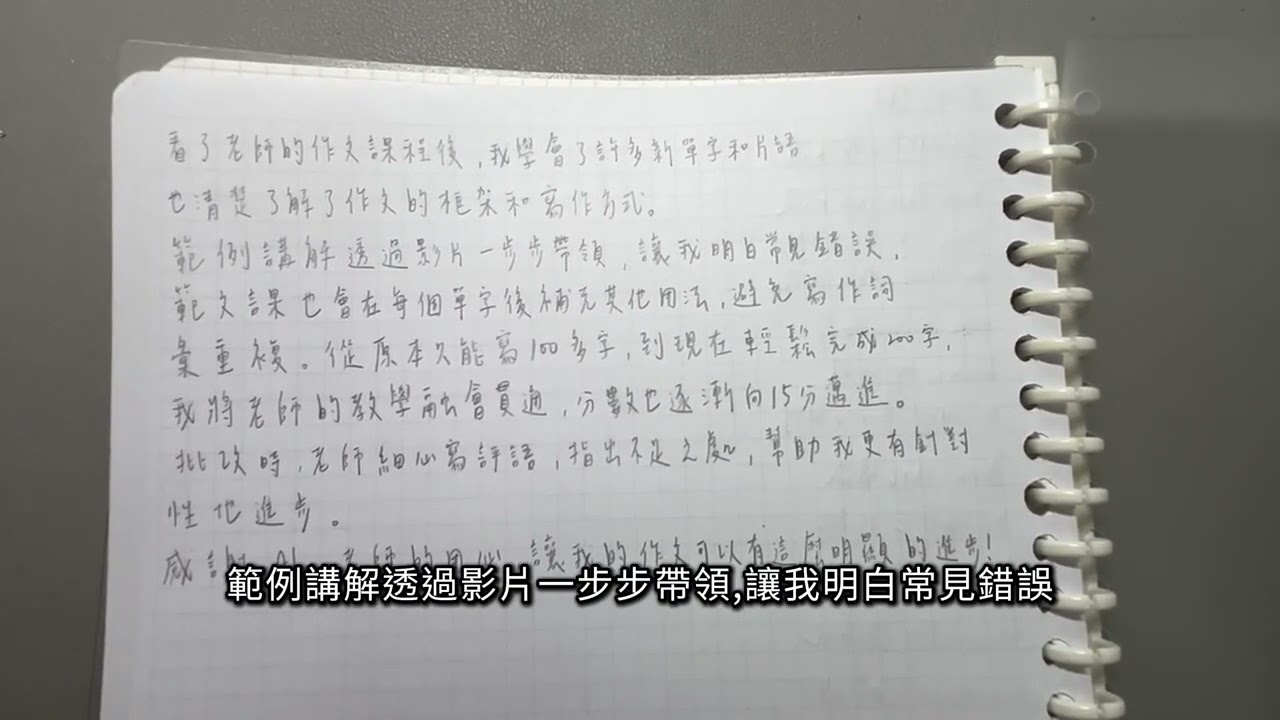 看了老師的作文課程後，我學會了許多新單字和片語
也清楚了解了作文的框架和寫作方式。
範例講解透過影片一步步帶領，讓我明白常見錯誤，
範文課也會在每個單字後補充其他用法，避免寫作詞
彙重複。從原本只能寫100多字，到現在輕鬆完成200字，
我將老師的教學融會貫通，分數也逐漸向15分邁進。
批改時，老師細心寫評語，指出不足之處，幫助我更有針對
性地進步。
感謝 老師的用心 讓我的作文可以有這麼明顯的進步!
範例講解透過影片一步步帶領,讓我明白常見錯誤